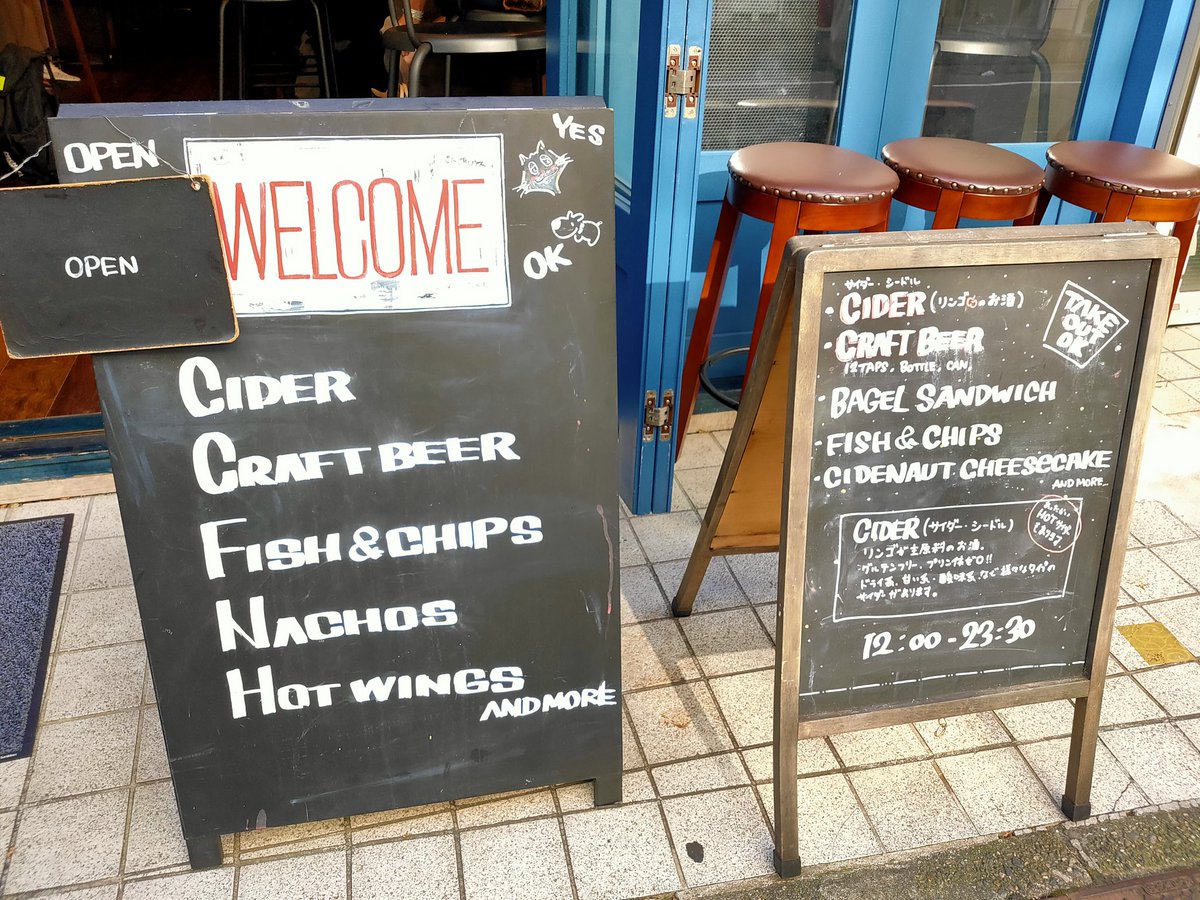 OPEN
WELCOME
YES
OK
OPEN
CIDER
CRAFT BEER
FISH & CHIPS
NACHOS
HOT WINGS
AND MORE
サイダー・シードル
・CIDER (リンゴのお酒)
・CRAFT BEER
12 TAPS, BOTTLE, CAN,
TAKE
OUT
OK
・BAGEL SANDWICH
・FISH & CHIPS
・CIDENAUT CHEESECAKE
AND MORE...
CIDER (サイダー・シードル)
リンゴが主原料のお酒。
グルテンフリー、プリン体ゼロ!!
ドライ系、甘い系、酸味系、など様々なタイプの
サイダーがあります。
HOT サイダー
あります
12:00 - 23:30